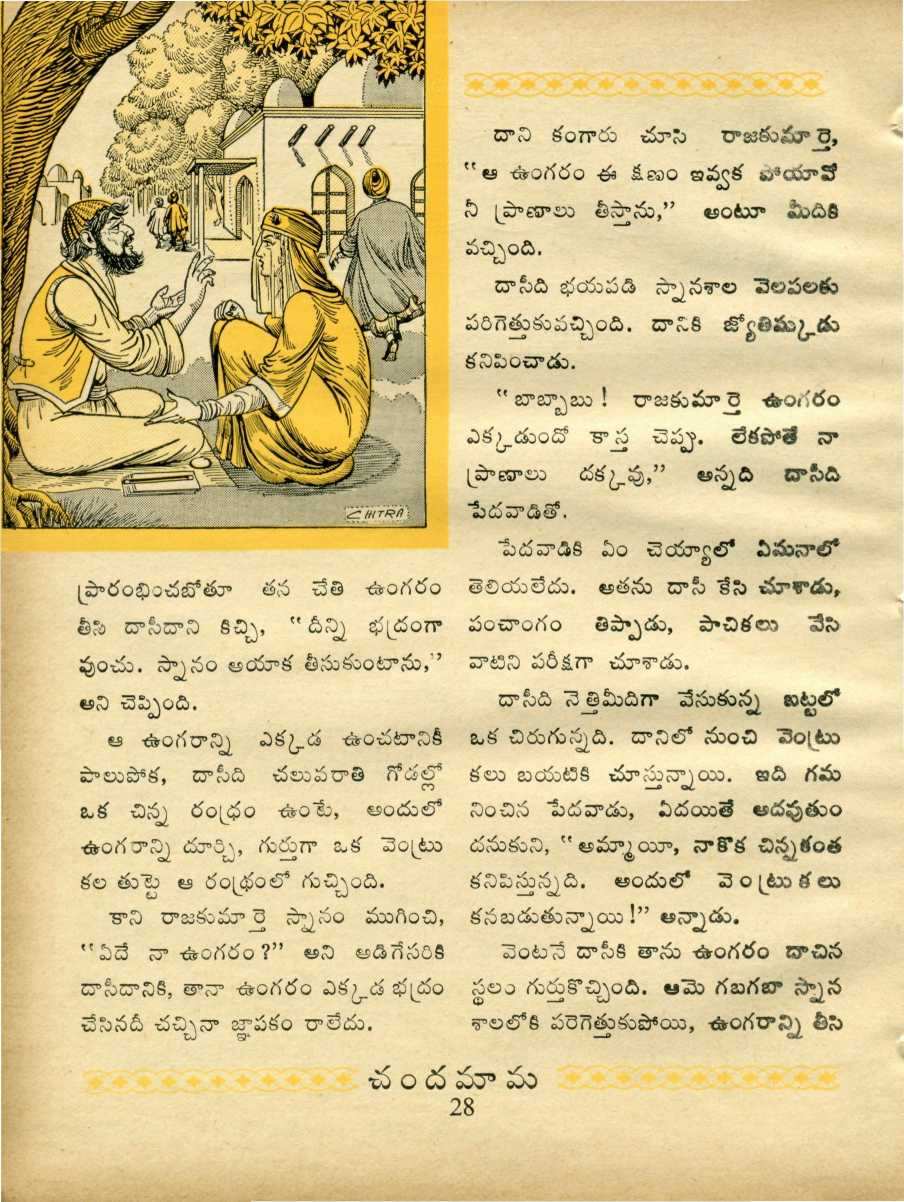 CHITRA
ప్రారంభించబోతూ తన చేతి ఉంగరం
తీసి దాసీదాని కిచ్చి, "దీన్ని భద్రంగా
వుంచు. స్నానం అయాక తీసుకుంటాను,"
అని చెప్పింది.
ఆ ఉంగరాన్ని ఎక్కడ ఉంచటానికీ
పాలుపోక, దాసీది చలువరాతి గోడల్లో
ఒక చిన్న రంధ్రం ఉంటే, అందులో
ఉంగరాన్ని దూర్చి, గుర్తుగా ఒక వెంట్రు
కల తుట్టె ఆ రంధ్రంలో గుచ్చింది.
కాని రాజకుమార్తె స్నానం ముగించి,
"ఏదే నా ఉంగరం?" అని అడిగేసరికి
దాసీదానికి, తానా ఉంగరం ఎక్కడ భద్రం
చేసినదీ చచ్చినా జ్ఞాపకం రాలేదు.
దాని కంగారు చూసి రాజకుమార్తె,
"ఆ ఉంగరం ఈ క్షణం ఇవ్వక పోయావో
నీ ప్రాణాలు తీస్తాను," అంటూ మీదికి
వచ్చింది.
దాసీది భయపడి స్నానశాల వెలపలకు
పరిగెత్తుకువచ్చింది. దానికి జ్యోతిష్కుడు
కనిపించాడు.
"బాబ్బాబు! రాజకుమార్తె ఉంగరం
ఎక్కడుందో కాస్త చెప్పు. లేకపోతే నా
ప్రాణాలు దక్కవు," అన్నది దాసీది
పేదవాడితో.
పేదవాడికి ఏం చెయ్యాలో ఏమనాలో
తెలియలేదు. అతను దాసీ కేసి చూశాడు,
పంచాంగం తిప్పాడు, పాచికలు వేసి
వాటిని పరీక్షగా చూశాడు.
దాసీది నెత్తిమీదిగా వేసుకున్న బట్టలో
ఒక చిరుగున్నది. దానిలో నుంచి వెంట్రు
కలు బయటికి చూస్తున్నాయి. ఇది గమ
నించిన పేదవాడు, ఏదయితే అదవుతుం
దనుకుని, "అమ్మాయీ, నాకొక చిన్నకంత
కనిపిస్తున్నది. అందులో వెంట్రుకలు
కనబడుతున్నాయి!" అన్నాడు.
వెంటనే దాసీకి తాను ఉంగరం దాచిన
స్థలం గుర్తుకొచ్చింది. ఆమె గబగబా స్నాన
శాలలోకి పరెగెత్తుకుపోయి, ఉంగరాన్ని తీసి
చందమామ
28